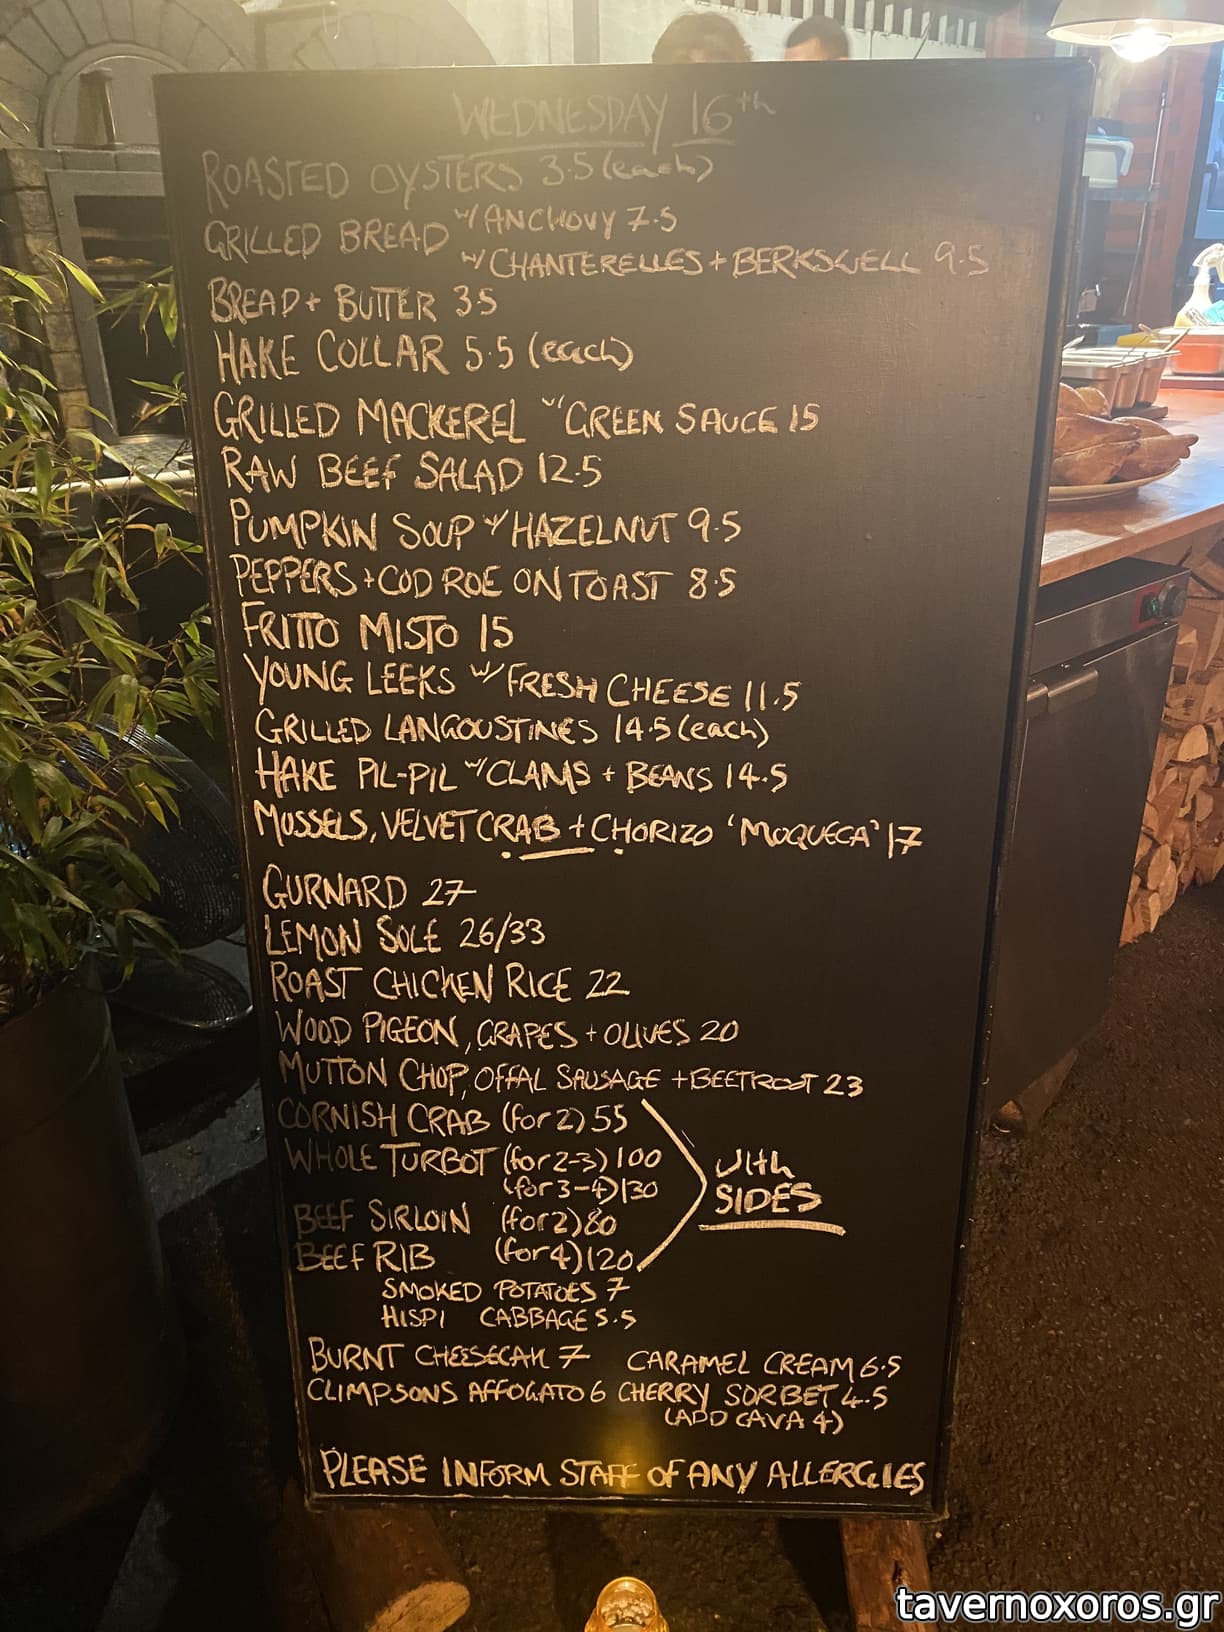 WEDNESDAY 16th
ROASTED OYSTERS 3.5 (each)
GRILLED BREAD w/ ANCHOVY 7.5
w/ CHANTERELLES + BERKSWELL 9.5
BREAD + BUTTER 3.5
HAKE COLLAR 5.5 (each)
GRILLED MACKEREL w/ GREEN SAUCE 15
RAW BEEF SALAD 12.5
PUMPKIN SOUP w/ HAZELNUT 9.5
PEPPERS + COD ROE ON TOAST 8.5
FRITTO MISTO 15
YOUNG LEEKS w/ FRESH CHEESE 11.5
GRILLED LANGOUSTINES 14.5 (each)
HAKE PIL-PIL w/ CLAMS + BEANS 14.5
MUSSELS, VELVET CRAB + CHORIZO 'MOQUECA' 17
GURNARD 27
LEMON SOLE 26/33
ROAST CHICKEN RICE 22
WOOD PIGEON, GRAPES + OLIVES 20
MUTTON CHOP, OFFAL SAUSAGE + BEETROOT 23
CORNISH CRAB (for 2) 55
WHOLE TURBOT (for 2-3) 100
(for 3-4) 130
BEEF SIRLOIN (for 2) 80
BEEF RIB (for 4) 120
with
SIDES
SMOKED POTATOES 7
HISPI CABBAGE 5.5
BURNT CHEESECAK 7 CARAMEL CREAM 6.5
CLIMPSONS AFFOGATO 6 CHERRY SORBET 4.5
(ADD CAVA 4)
PLEASE INFORM STAFF OF ANY ALLERGIES
tavernoxoros.gr